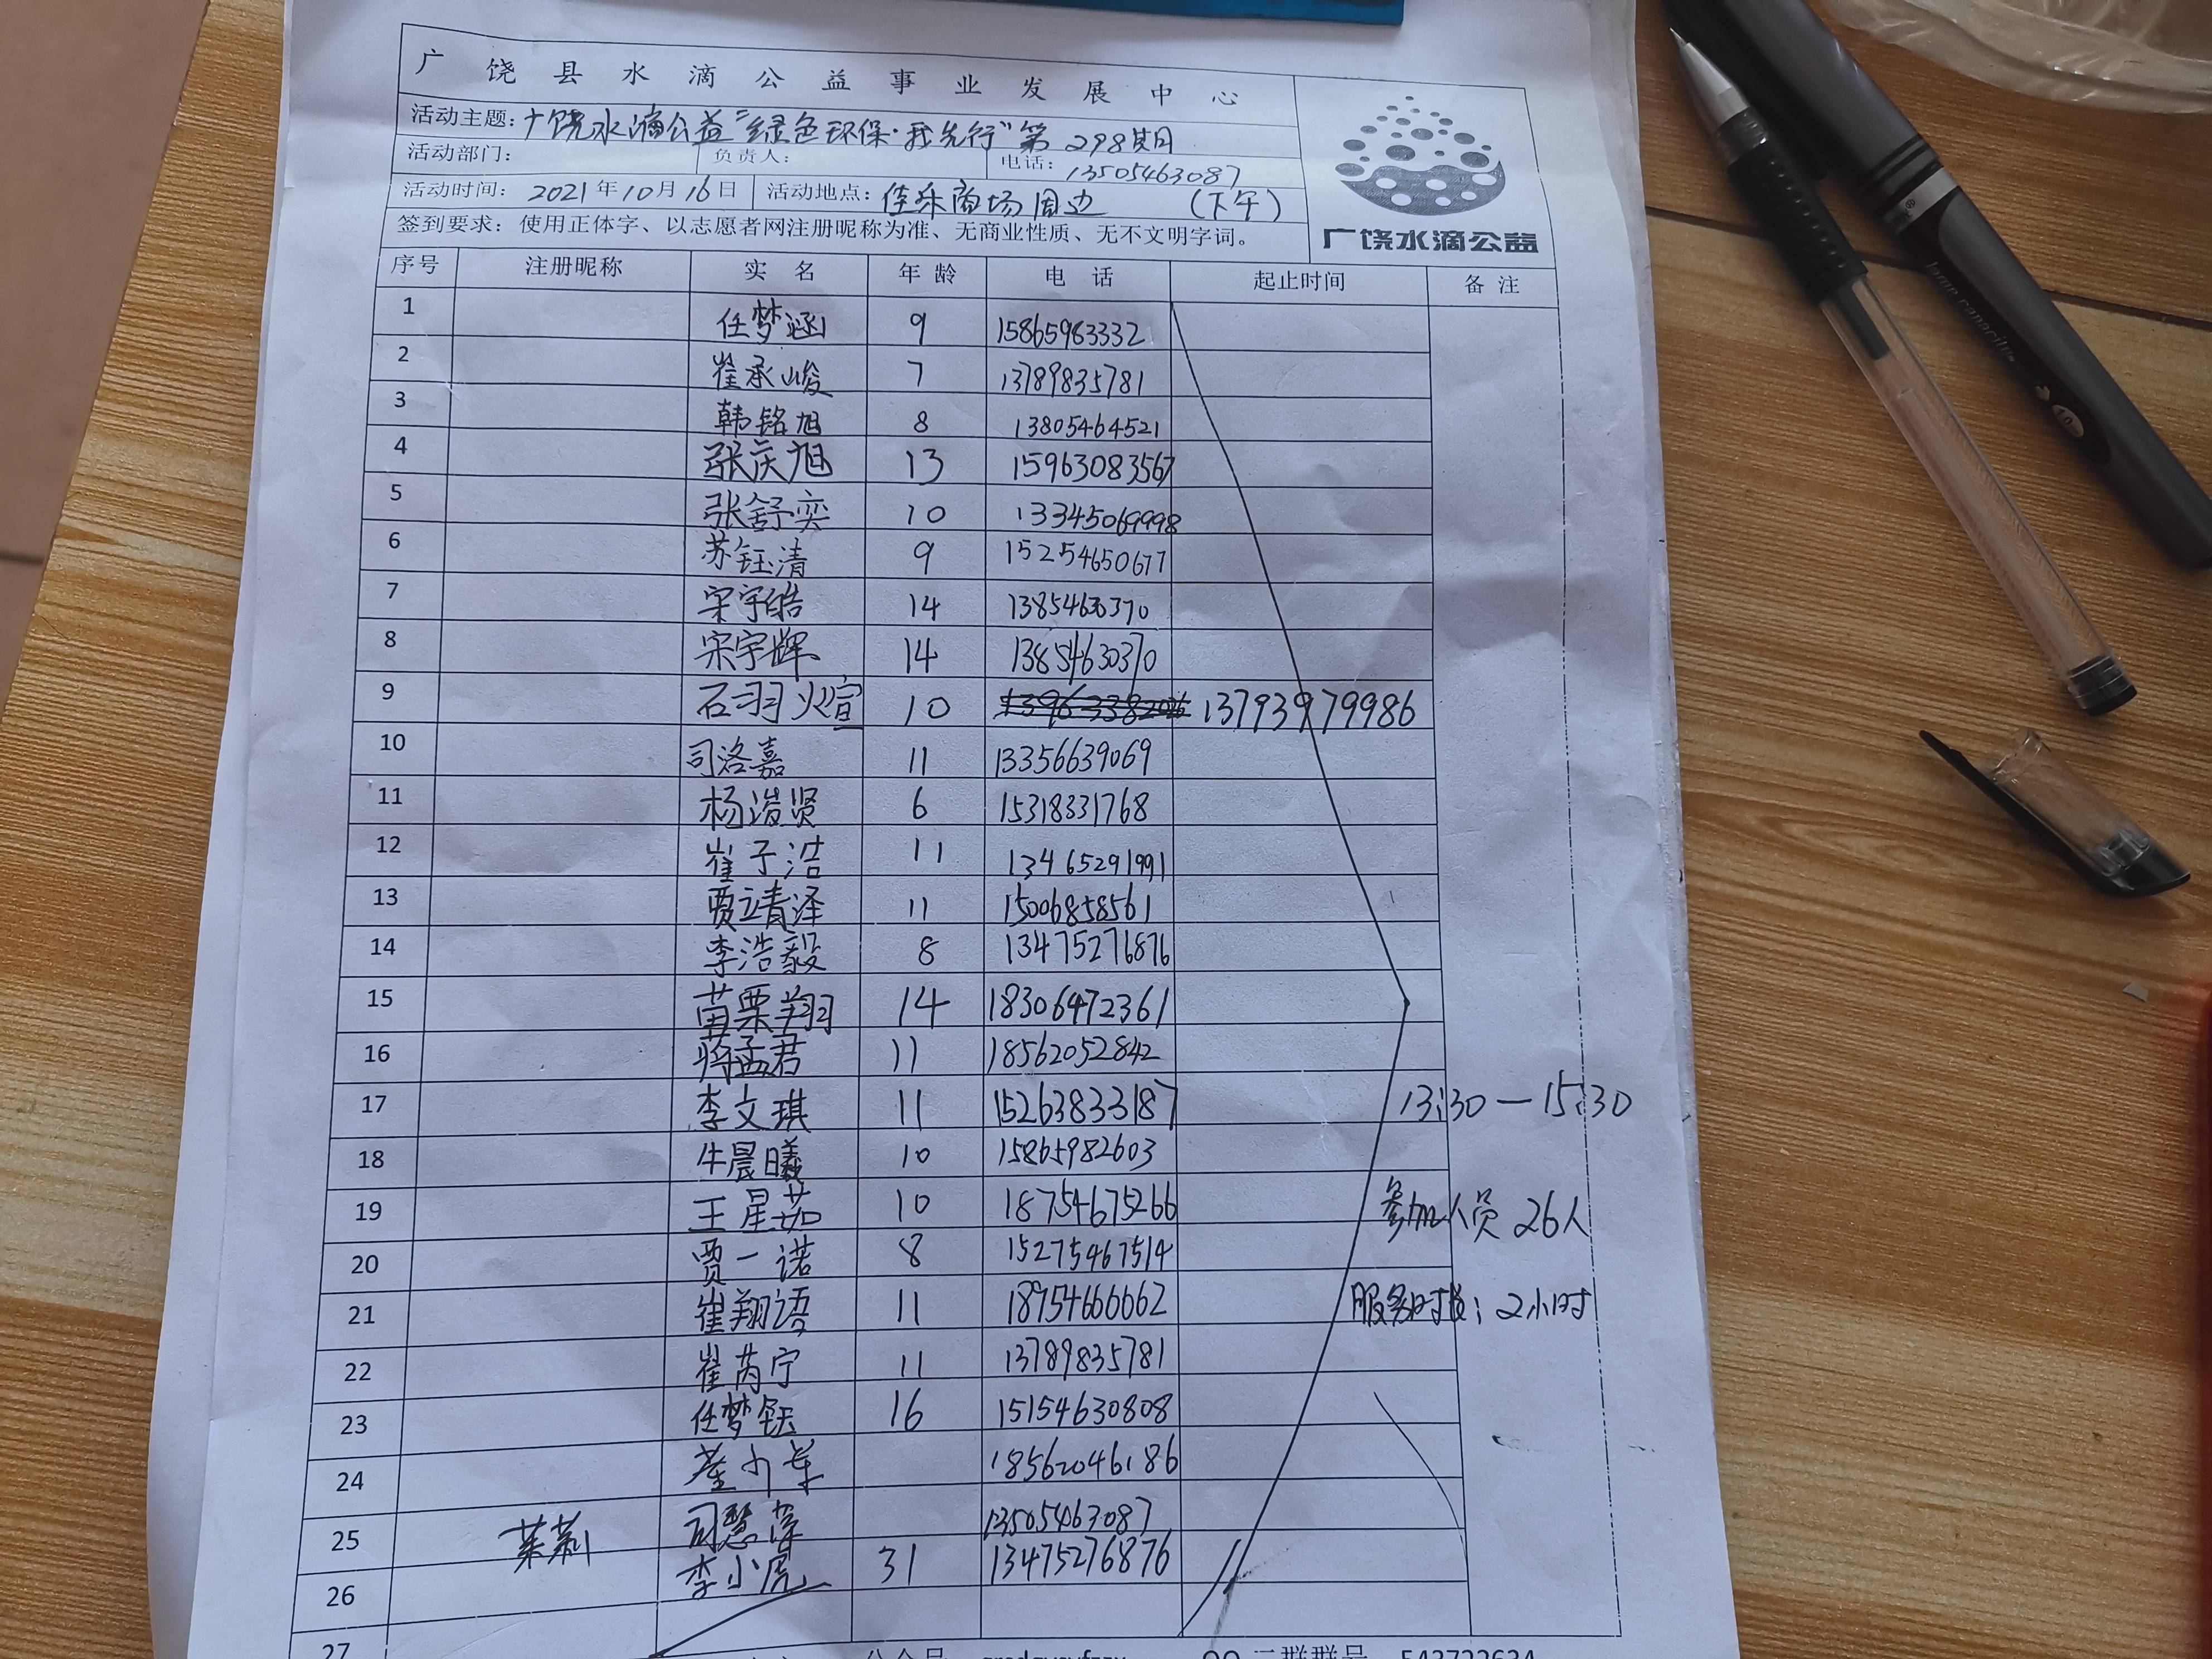 广饶县水滴公益事业发展中心
活动主题：广饶水滴公益“绿色环保·我先行”第298期
活动部门： 负责人： 电话：13505463087
活动时间：2021年10月16日 活动地点：佳乐商场周边（下午）
签到要求：使用正体字、以志愿者网注册昵称为准、无商业性质、无不文明字词。
广饶水滴公益
序号 注册昵称 实名 年龄 电话 起止时间 备注
1 任梦涵 9 15865983332
2 崔承峻 7 13789835781
3 韩铭旭 8 13805464521
4 张庆旭 13 15963083567
5 张舒奕 10 13345069998
6 苏钰清 9 15254650677
7 宋宇皓 14 13854630370
8 宋宇辉 14 13854630370
9 石羽煊 10 13793979986
10 司洛嘉 11 13356639069
11 杨浩贤 6 15318331768
12 崔子浩 11 13465291991
13 贾靖泽 11 15006858561
14 李浩毅 8 13475276876
15 苗栗翔 14 18306472361
16 蒋孟君 11 18562052842
17 李文琪 11 15263833187 13:30—15:30
18 牛晨曦 10 15865982603
19 王星茹 10 18754675266 参加人员26人
20 贾一诺 8 15275467514
21 崔翔语 11 18954660062 服务时长：2小时
22 崔芮宁 11 13789835781
23 任梦 16 15154630808
24 18562046186
25 茉莉 司慧萍 13505463087
26 李小虎 31 13475276876
27
543722634